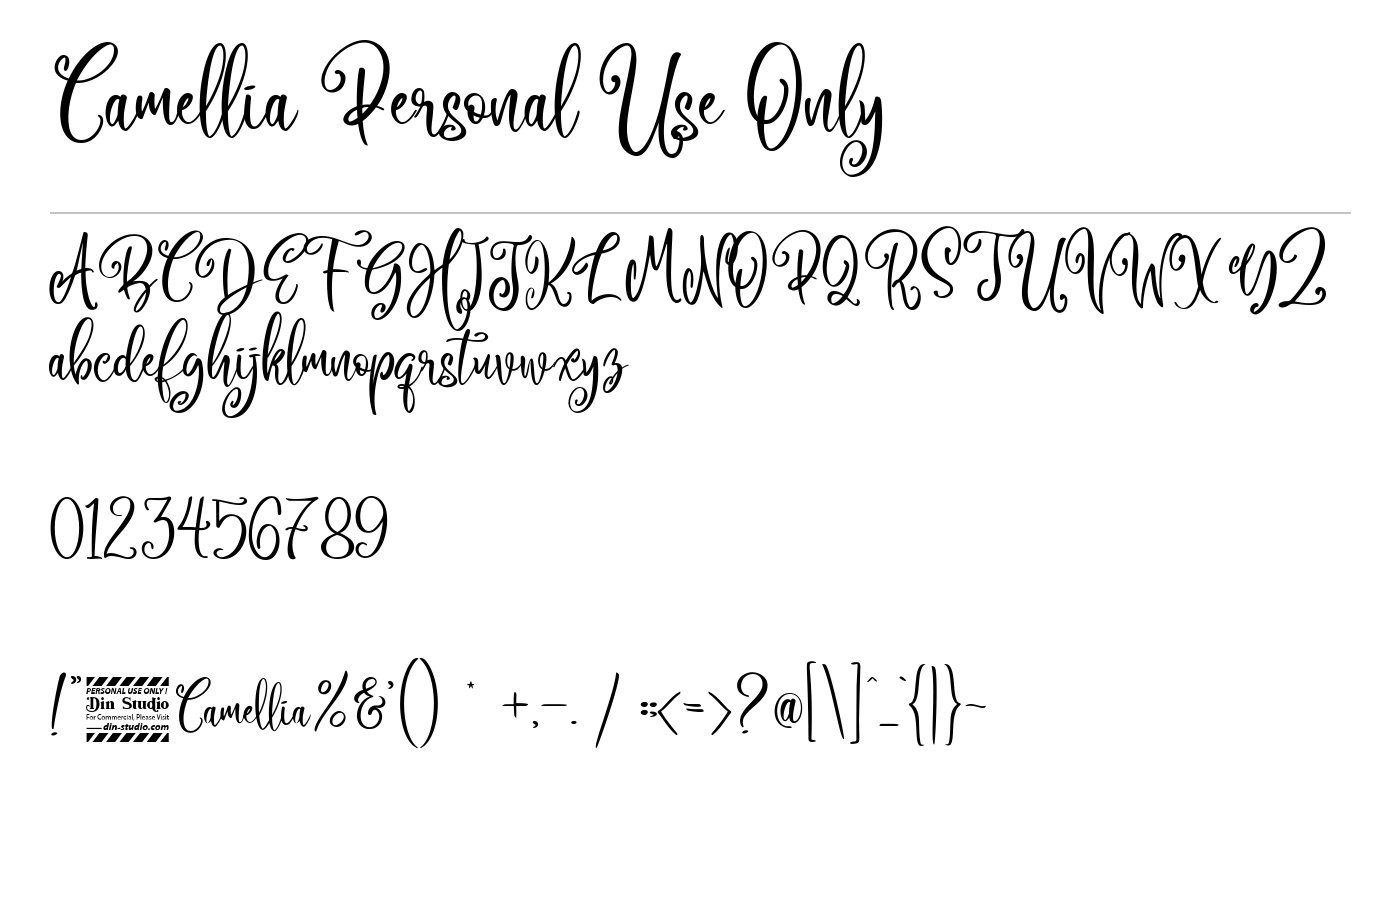 Camellia Personal Use Only
ABCDEFGHIJKLMNOPQRSTUVWXYZ
abcdefghijklmnopqrstuvwxyz
0123456789
!"
PERSONAL USE ONLY!
Din Studio
For Commercial, Please Visit
din-studio.com
Camellia%&'() * +,-. / :;<=>?@[\]^_`{|}~